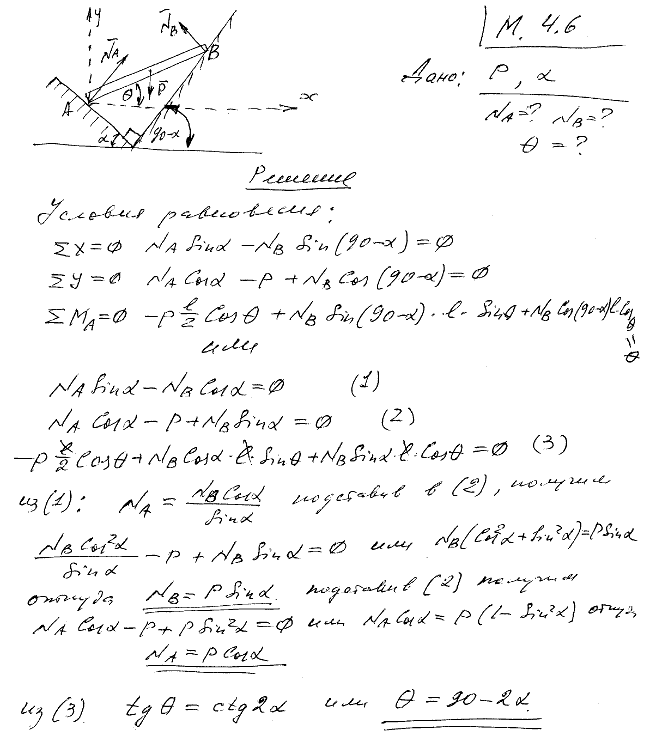 М. 4.6
Дано: P, α
N_A=? N_B=?
θ = ?
y
N̄_A
N̄_B
B
θ
P̄
A
x
α
90-α
Решение
Условия равновесия:
ΣX=0 N_A Sinα - N_B Sin(90-α)=0
ΣY=0 N_A Cosα - P + N_B Cos(90-α)=0
ΣM_A=0 -P l/2 Cosθ + N_B Sin(90-α)·l· Sinθ + N_B Cos(90-α)l·Cosθ = 0
или
N_A Sinα - N_B Cosα = 0 (1)
N_A Cosα - P + N_B Sinα = 0 (2)
-P l/2 Cosθ + N_B Cosα·l·Sinθ + N_B Sinα·l·Cosθ = 0 (3)
из (1): N_A = N_B Cosα / Sinα подставив в (2), получим
N_B Cos²α / Sinα - P + N_B Sinα = 0 или N_B(Cos²α + Sin²α) = P Sinα
откуда N_B = P Sinα. подставив (2) получим
N_A Cosα - P + P Sin²α = 0 или N_A Cosα = P(1 - Sin²α) откуд
N_A = P Cosα
из (3) tgθ = ctg2α или θ = 90-2α.